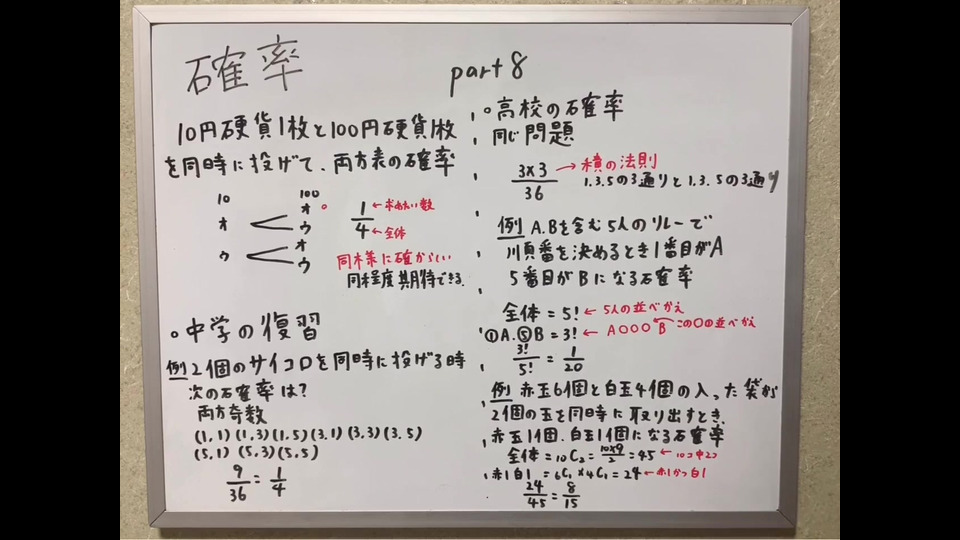 確率
part8
10円硬貨1枚と100円硬貨1枚
を同時に投げて、両方表の確率
10 100
オ オ
ウ
ウ オ
ウ
1/4
←求めたい数
←全体
同様に確からしい
同程度期待できる
。中学の復習
例 2個のサイコロを同時に投げる時
次の確率は?
両方奇数
(1,1)(1,3)(1,5)(3,1)(3,3)(3,5)
(5,1)(5,3)(5,5)
9/36 = 1/4
。高校の確率
同じ問題
3×3/36
→積の法則
1.3.5の3通りと1.3.5の3通り
例 A.Bを含む5人のリレーで
順番を決めるとき1番目がA
5番目がBになる確率
全体=5! ←5人の並べかえ
①A.⑤B=3! ←A〇〇〇B この〇の並べかえ
3!/5! = 1/20
例 赤玉6個と白玉4個の入った袋から
2個の玉を同時に取り出すとき、
赤玉1個、白玉1個になる確率
全体=10C2=10×9/2=45 ←10コ中2コ
赤1白1=6C1×4C1=24 ←赤1かつ白1
24/45=8/15